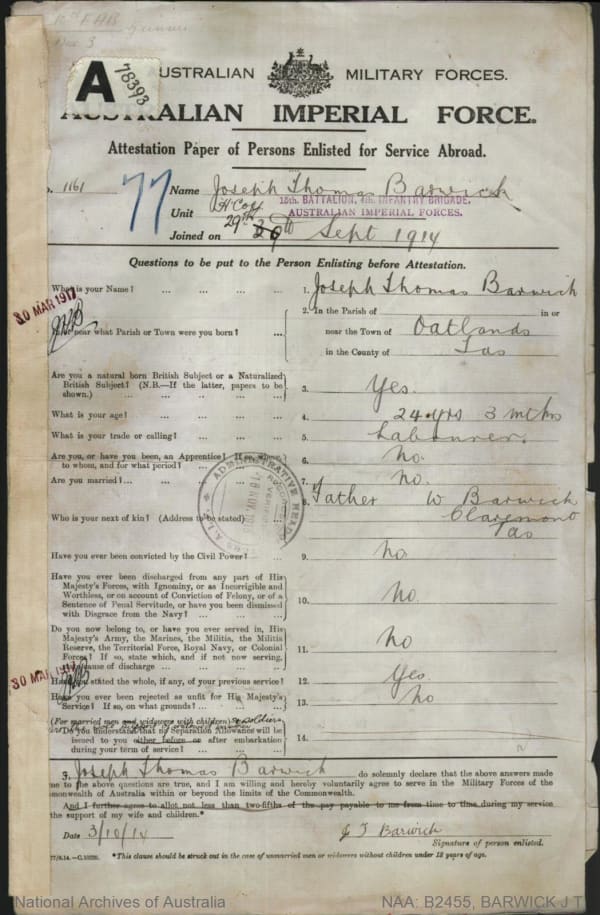 A
78393
AUSTRALIAN MILITARY FORCES.
AUSTRALIAN IMPERIAL FORCE.
Attestation Paper of Persons Enlisted for Service Abroad.
No. 1161 77 Name Joseph Thomas Barwick
Unit H Coy 15th BATTALION, 4th INFANTRY BRIGADE,
AUSTRALIAN IMPERIAL FORCES.
Joined on 29th Sept 1914
Questions to be put to the Person Enlisting before Attestation.
What is your Name? ... ... ... ... 1. Joseph Thomas Barwick
30 MAR 1917
2. In the Parish of in or
near what Parish or Town were you born? ... near the Town of Oatlands
in the County of Tas
Are you a natural born British Subject or a Naturalized
British Subject? (N.B.—If the latter, papers to be
shown.) ... ... ... ... 3. Yes.
What is your age? ... ... ... ... 4. 24 yrs 3 mths
What is your trade or calling? ... ... ... 5. Labourer.
Are you, or have you been, an Apprentice? If so, where,
to whom, and for what period? ... ... 6. No.
Are you married? ... ... ... 7. No.
ADMINISTRATIVE HEAD
Who is your next of kin? (Address to be stated) ... 8. Father W Barwick
Claremont
Tas
Have you ever been convicted by the Civil Power? ... 9. No
Have you ever been discharged from any part of His
Majesty's Forces, with Ignominy, or as Incorrigible and
Worthless, or on account of Conviction of Felony, or of a
Sentence of Penal Servitude, or have you been dismissed
with Disgrace from the Navy? ... ... 10. No.
Do you now belong to, or have you ever served in, His
Majesty's Army, the Marines, the Militia, the Militia
Reserve, the Territorial Force, Royal Navy, or Colonial
Forces? If so, state which, and if not now serving,
cause of discharge ... ... ... 11. No
30 MAR 1917
Have you stated the whole, if any, of your previous service? 12. Yes.
Have you ever been rejected as unfit for His Majesty's
Service? If so, on what grounds? ... ... 13. No
(For married men and widowers with children) & soldiers
Do you understand that no Separation Allowance will be
issued to you either before or after embarkation
during your term of service? ... ... 14.
I, Joseph Thomas Barwick do solemnly declare that the above answers made
me to the above questions are true, and I am willing and hereby voluntarily agree to serve in the Military Forces of the
monwealth of Australia within or beyond the limits of the Commonwealth.
And I further agree to allot not less than two-fifths of the pay payable to me from time to time during my service
the support of my wife and children.*
Date 3/10/14 J T Barwick
Signature of person enlisted.
*This clause should be struck out in the case of unmarried men or widowers without children under 18 years of age.
National Archives of Australia NAA: B2455, BARWICK J T